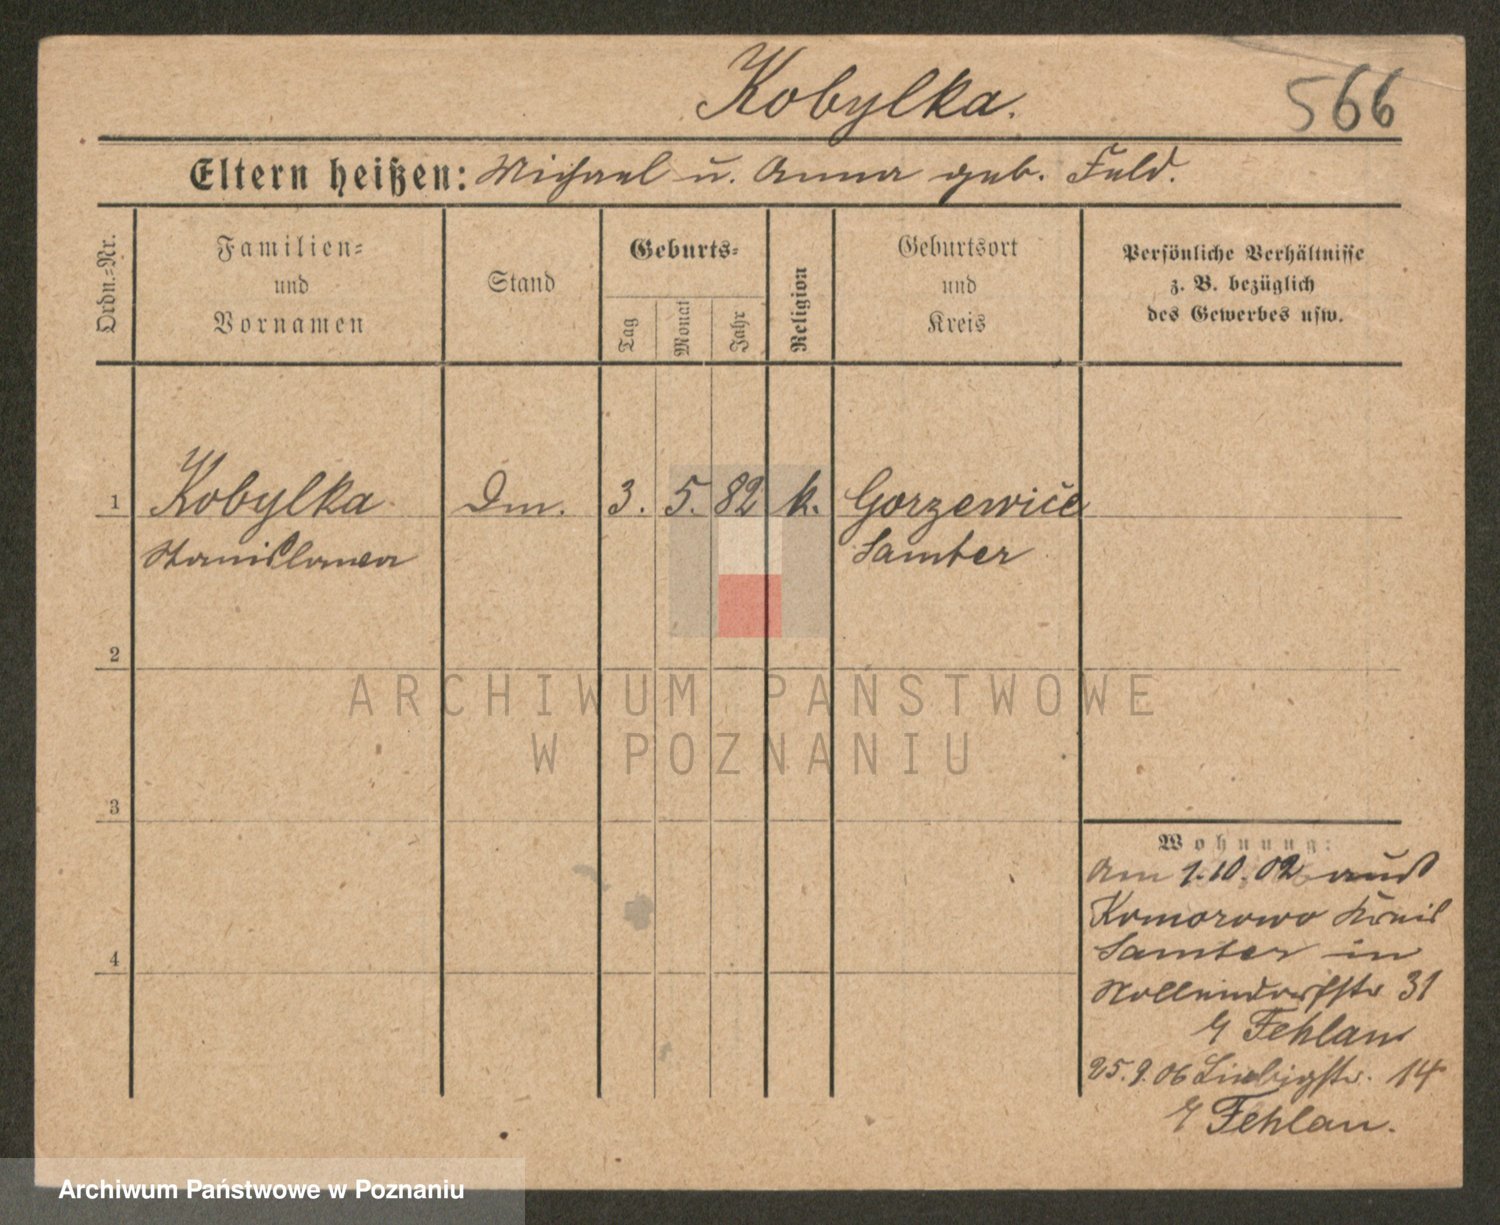 Kobylka.
566
Eltern heißen: Michael u. Anna geb. Feld.
Ordn.-Nr.
Familien-
und
Vornamen
Stand
Geburts-
Tag
Monat
Jahr
Religion
Geburtsort
und
Kreis
Persönliche Verhältnisse
z. B. bezüglich
des Gewerbes usw.
1 Kobylka Dm. 3. 5. 82 k. Gorzewice
Stanislawa Samter
2
ARCHIWUM PAŃSTWOWE
W POZNANIU
3
Wohnung:
Am 1.10.02 aus
Komorowo Kreis
Samter in
4
Nollendorfstr 31
Fehlan
25.9.06 Liebigstr. 14
Fehlan.
Archiwum Państwowe w Poznaniu